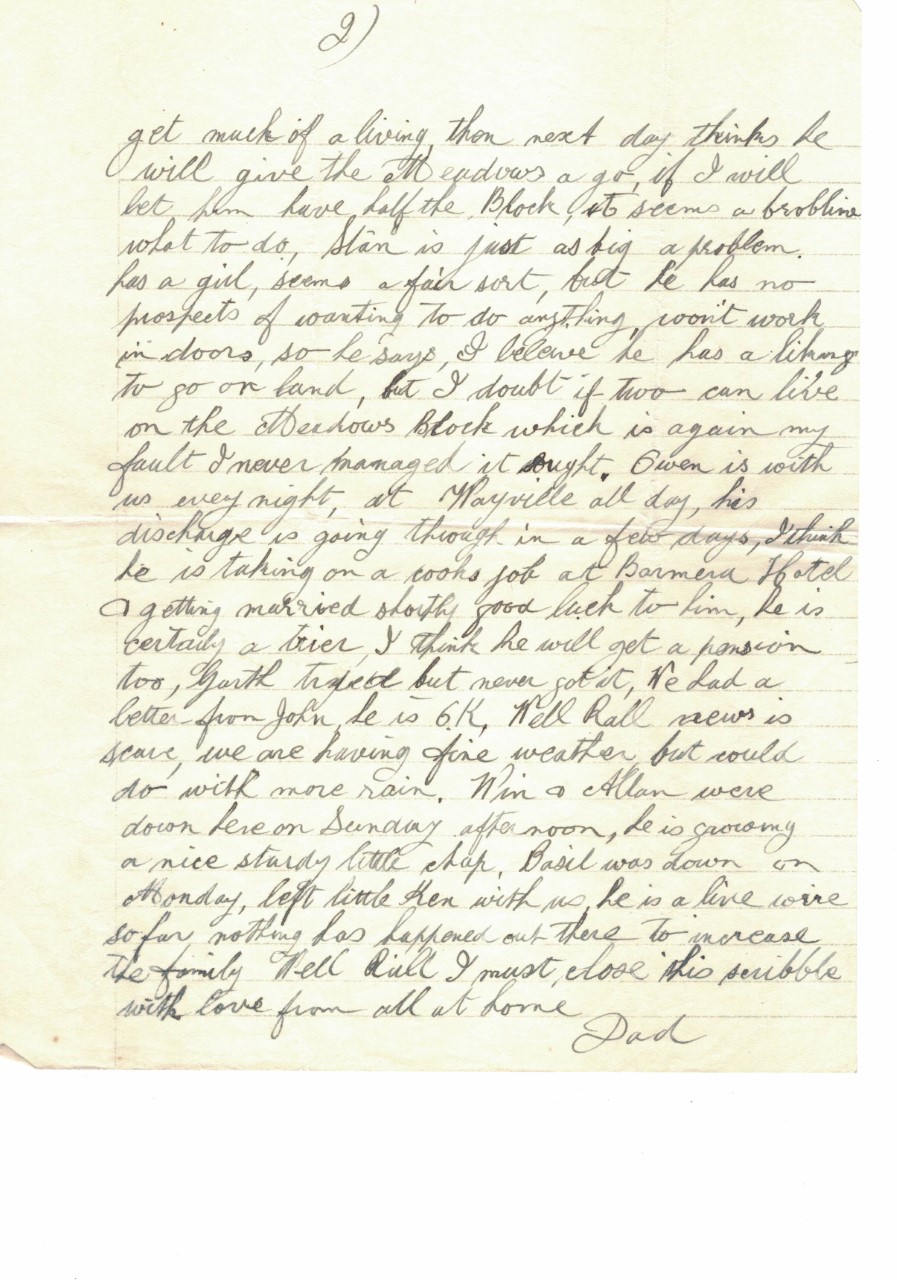 2)
get much of a living, then next day thinks he
will give the Meadows a go, if I will
let him have half the Block, it seems a brobline
what to do, Stan is just as big a problem.
has a girl, seems a fair sort, but he has no
prospects of wanting to do anything, won't work
in doors, so he says, I beleave he has a liking
to go on land, but I doubt if two can live
on the Meadows Block which is again my
fault I never managed it ought. Owen is with
us every night, at Wayville all day, his
discharge is going through in a few days, I think
he is taking on a cooks job at Barmera Hotel
& getting married shortly good luck to him, he is
certaily a trier, I think he will get a pension
too, Garth tryed but never got it, We had a
letter from John, he is O.K, Well news is
scarc, we are having fine weather, but could
do with more rain. Win & Allan were
down here on Sunday afternoon, he is growing
a nice sturdy little chap. Basil was down on
Monday, left little Ken with us, he is a live wire
so far nothing has happened out there to increase
the family Well I must close this scribble
with love from all at home
Dad